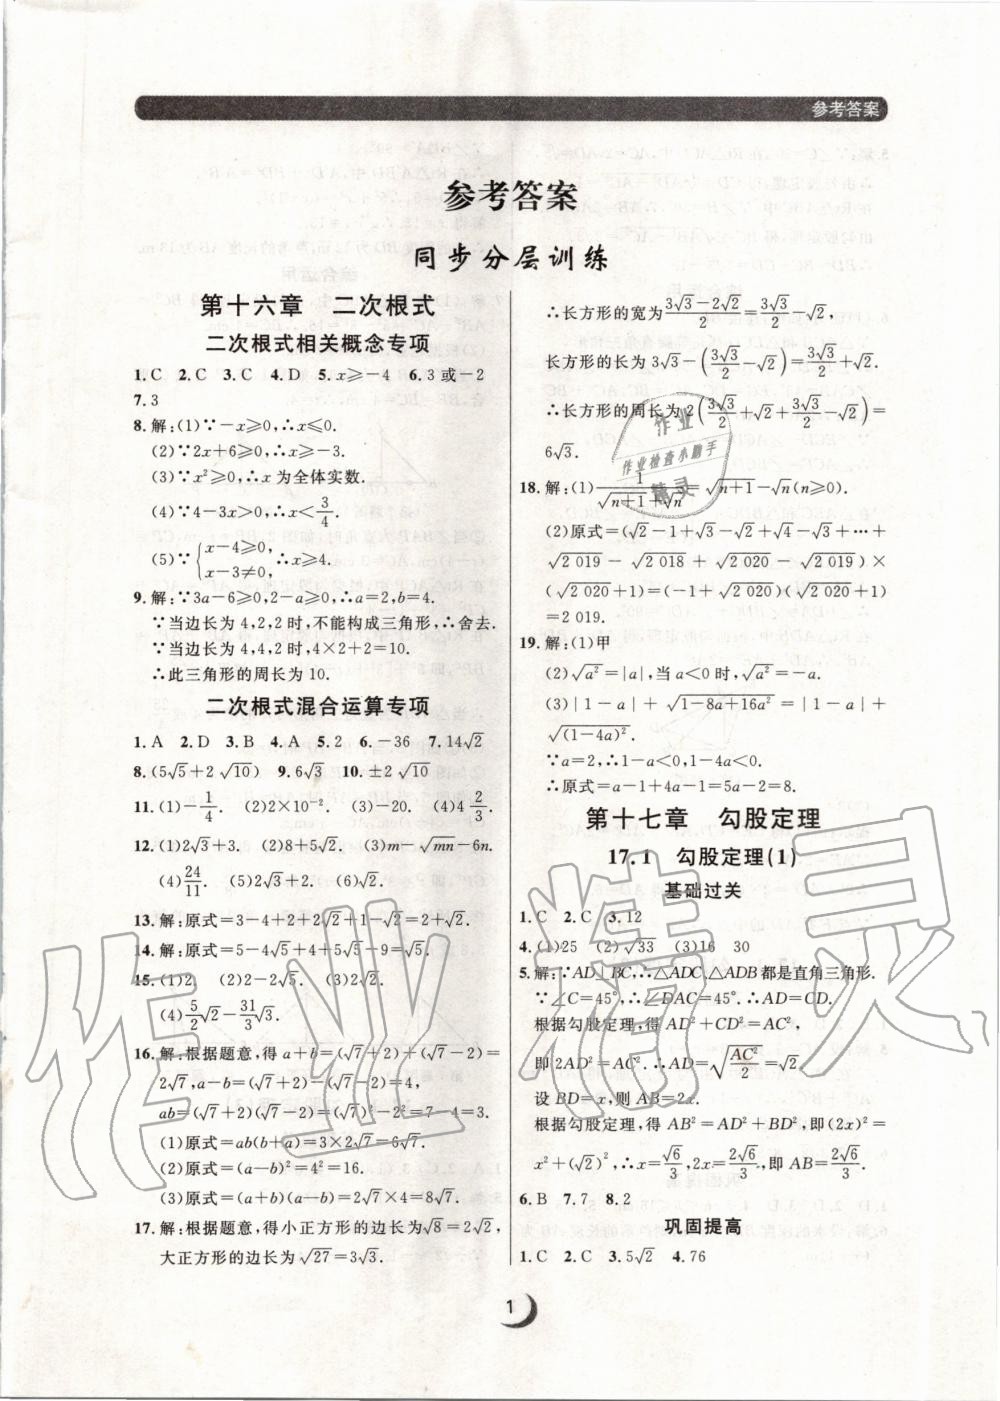 参考答案
参考答案
同步分层训练
第十六章 二次根式
二次根式相关概念专项
1.C 2.C 3.C 4.D 5.x≥-4 6.3或-2
7.3
8.解:(1)∵-x≥0,∴x≤0.
(2)∵2x+6≥0,∴x≥-3.
(3)∵x²≥0,∴x为全体实数.
(4)∵4-3x>0,∴x<3/4.
(5)∵{x-4≥0, x-3≠0, ∴x≥4.
9.解:∵3a-6≥0,2-a≥0,∴a=2,b=4.
∵当边长为4,2,2时,不能构成三角形,∴舍去.
∴当边长为4,4,2时,4×2+2=10.
∴此三角形的周长为10.
二次根式混合运算专项
1.A 2.D 3.B 4.A 5.2 6.-36 7.14√2
8.(5√5+2√10) 9.6√3 10.±2√10
11.(1)-1/4. (2)2×10⁻². (3)-20. (4)4 2/3.
12.(1)2√3+3. (2)8+5√2. (3)m-√mn-6n.
(4)24/11. (5)2√3+2. (6)√2.
13.解:原式=3-4+2+2√2+1-√2=2+√2.
14.解:原式=5-4√5+4+5√5-9=√5.
15.(1)2. (2)-2√5. (3)2√2.
(4)5/2√2-31/3√3.
16.解:根据题意,得a+b=(√7+2)+(√7-2)=
2√7,a-b=(√7+2)-(√7-2)=4,
ab=(√7+2)(√7-2)=(√7)²-2²=7-4=3.
(1)原式=ab(b+a)=3×2√7=6√7.
(2)原式=(a-b)²=4²=16.
(3)原式=(a+b)(a-b)=2√7×4=8√7.
17.解:根据题意,得小正方形的边长为√8=2√2,
大正方形的边长为√27=3√3.
∴长方形的宽为(3√3-2√2)/2=3√3/2-√2,
长方形的长为3√3-(3√3/2-√2)=3√3/2+√2.
∴长方形的周长为2(3√3/2+√2+3√3/2-√2)=
6√3.
18.解:(1)1/(√(n+1)+√n)=√(n+1)-√n(n≥0).
(2)原式=(√2-1+√3-√2+√4-√3+…+
√2 019-√2 018+√2 020-√2 019)×
(√2 020+1)=(-1+√2 020)(√2 020+1)
=2 019.
19.解:(1)甲
(2)√a²=|a|,当a<0时,√a²=-a.
(3)|1-a|+√(1-8a+16a²)=|1-a|+
√(1-4a)².
∵a=2,∴1-a<0,1-4a<0.
∴原式=a-1+4a-1=5a-2=8.
第十七章 勾股定理
17.1 勾股定理(1)
基础过关
1.C 2.C 3.12
4.(1)25 (2)√33 (3)16 30
5.解:∵AD⊥BC,∴△ADC,△ADB都是直角三角形.
∵∠C=45°,∴∠DAC=45°.∴AD=CD.
根据勾股定理,得AD²+CD²=AC²,
即2AD²=AC².∴AD=√(AC²/2)=√2.
设BD=x,则AB=2x.
根据勾股定理,得AB²=AD²+BD²,即(2x)²=
x²+(√2)²,∴x=√6/3,2x=2√6/3,即AB=2√6/3.
6.B 7.7 8.2
巩固提高
1.C 2.C 3.5√2 4.76
1
作业
作业检查小助手
精灵
作业精灵